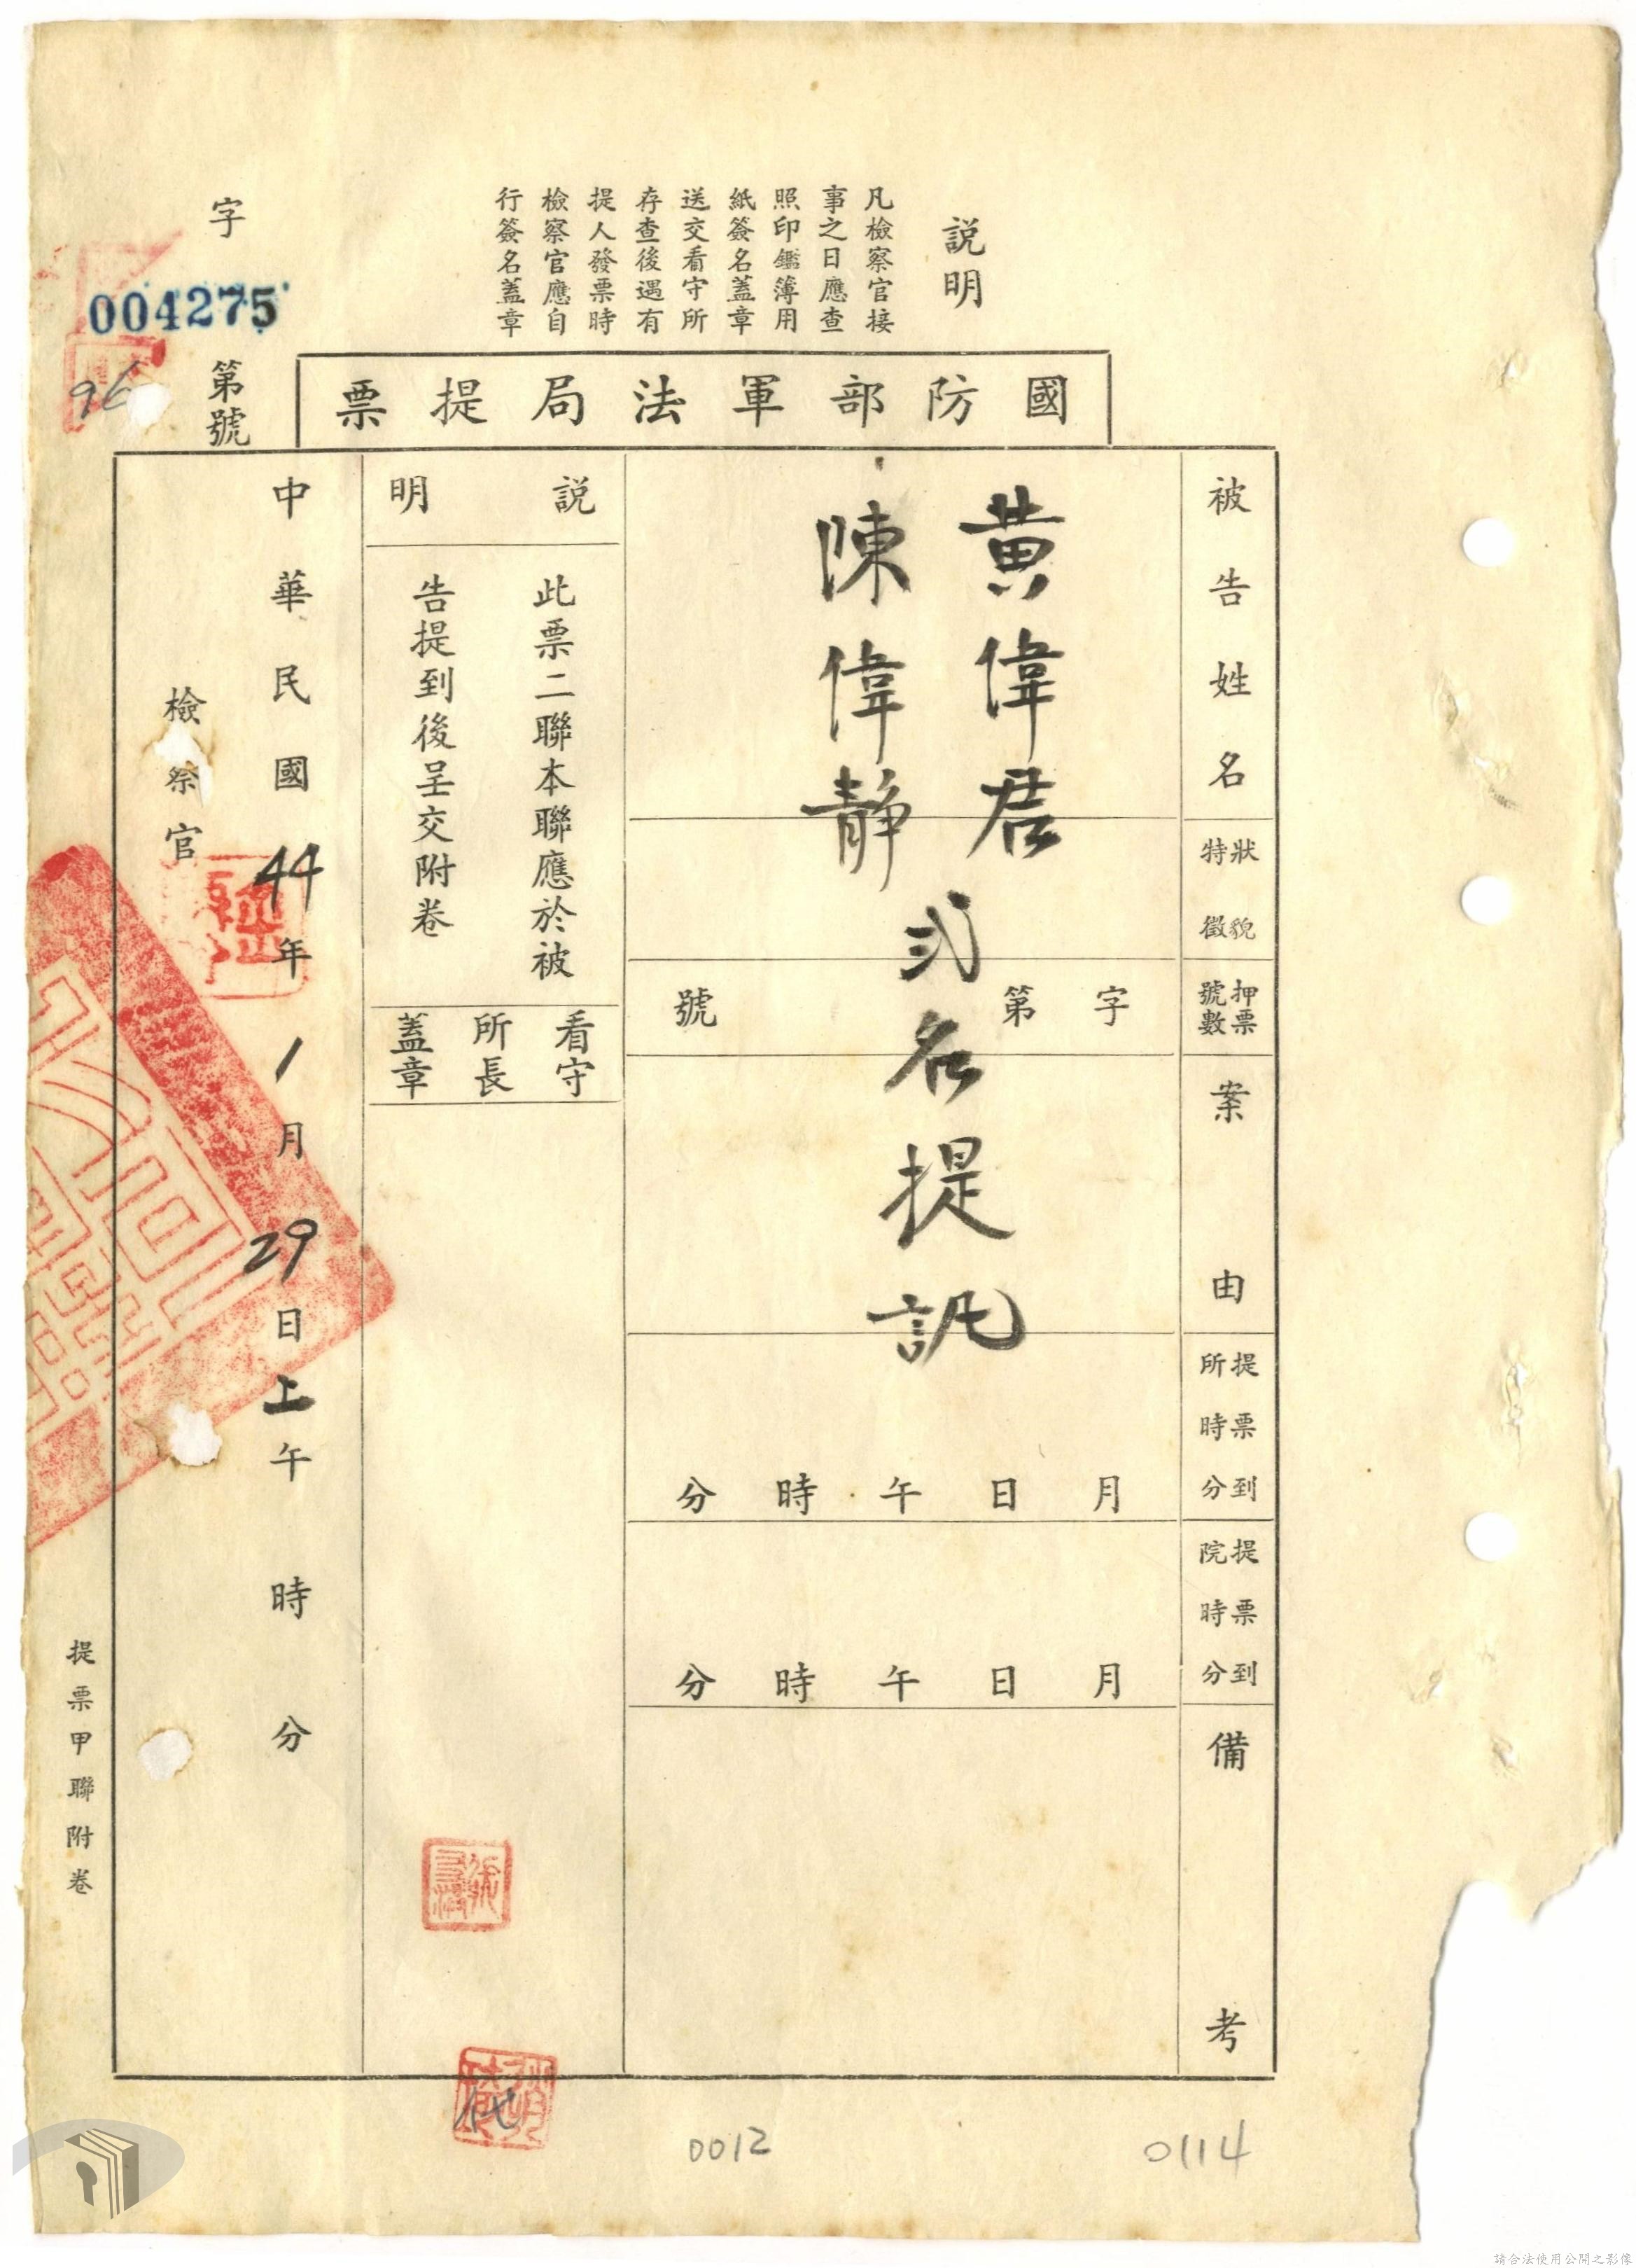 説明
凡檢察官接
事之日應查
照印鑑簿用
紙簽名蓋章
送交看守所
存查後遇有
提人發票時
檢察官應自
行簽名蓋章
字
004275
第號
96
國防部軍法局提票
被告姓名
黃偉君
陳偉静
弍名提訊
特徵狀貌
押票號數
字第 號
案由
提票到所時分
月 日 午 時 分
提票到院時分
月 日 午 時 分
備考
説明
此票二聯本聯應於被
告提到後呈交附卷
看守所長蓋章
中華民國44年1月29日上午 時 分
檢察官
提票甲聯附卷
代
0012
0114
請合法使用公開之影像